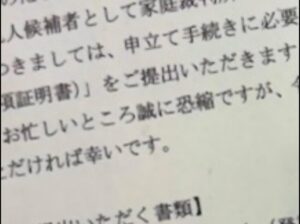 人候補者として家庭裁判所
つきましては、申立て手続きに必要
項証明書）」をご提出いただきます
お忙しいところ誠に恐縮ですが、
ただければ幸いです。
いただく書類】